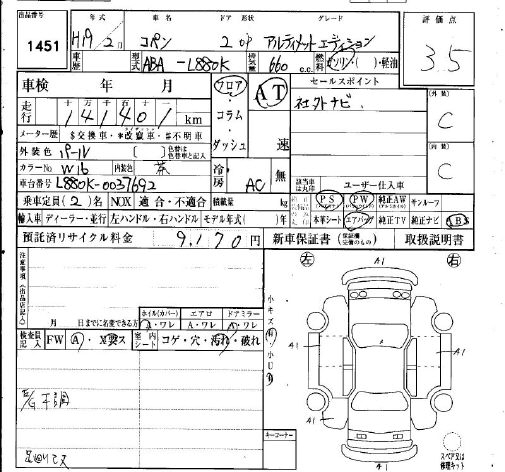 出品番号 年式 車名 ドア 形状 グレード 評価点
1451 H19/2月 コペン 2 OP アルティメットエディション 3.5
車歴 型式 ABA-L880K 排気量 660 c.c. 燃料 ガソリン・軽油
車検 年 月 フロア AT セールスポイント 外装 C
走行 十万千百十一 141401 km ・コラム・ダッシュ 速 社外ナビ
メーター歴 $交換車・*改竄車・#不明車
外装色 パール 色替は色替車と記入 内装 C
カラーNo W16 内装色 茶 AC 無 該当車は丸印 ユーザー仕入車
車台番号 L880K-0037692
乗車定員 (2)名 NOX 適合・不適合 積載量 kg PS PW 純正AW サンルーフ
輸入車 ディーラー・並行 左ハンドル・右ハンドル モデル年式( )年 本革シート エアバッグ 純正TV 純正ナビ
預託済リサイクル料金 9,170円 新車保証書 取扱説明書
注意事項(出品店記入) 左 A1 右
ホイル(カバー) エアロ ドアミラー
月 日までに名変できる方 A・ワレ A・ワレ A・ワレ
検査員記入 FW A・X要ス 室内シート コゲ・穴・汚れ・破れ
A1 A1
E/G
A1
コーナー
スペア又は修理キット
A1